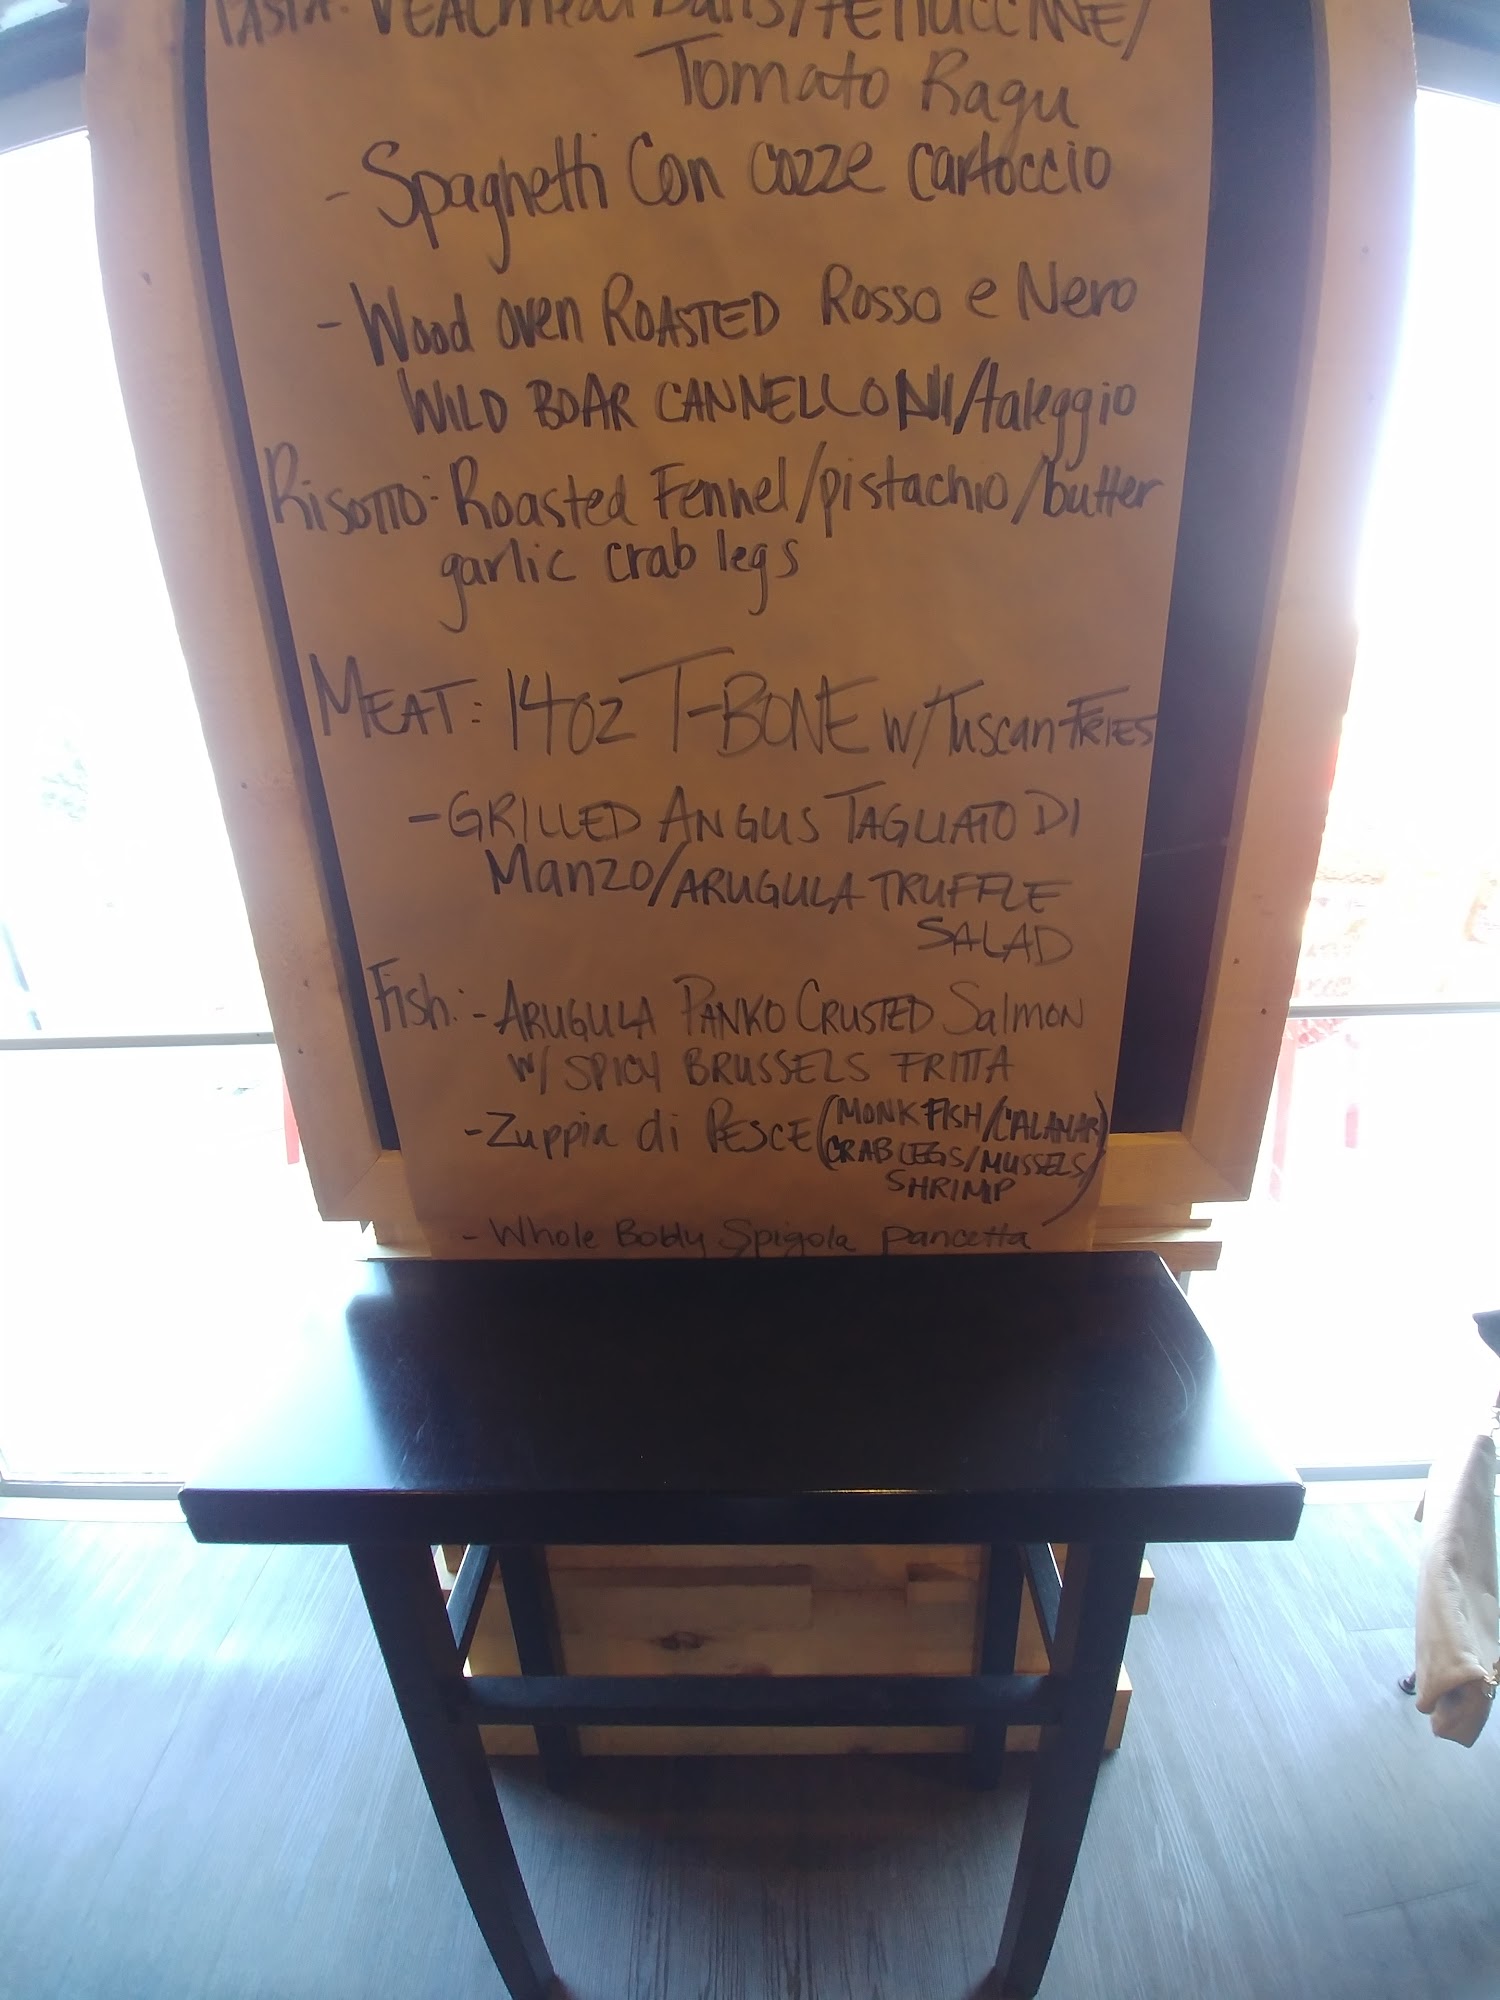 PASTA: VEAL meat balls/fettuccINE/
Tomato Ragu
- Spaghetti Con cozze cartoccio
- Wood oven ROASTED Rosso e Nero
WILD BOAR CANNELLONI/taleggio
RISOTTO: Roasted Fennel/pistachio/butter
garlic crab legs
MEAT: 14oz T-BONE w/Tuscan FRIES
- GRILLED ANGUS TAGLIATO DI
Manzo/ARUGULA TRUFFLE
SALAD
Fish: - ARUGULA PANKO CRUSTED Salmon
w/ SPICY BRUSSELS FRITTA
- Zuppia di PESCE (MONK FISH/CALAMARI
CRAB LEGS/MUSSELS
SHRIMP)
- Whole Bobly Spigola pancetta